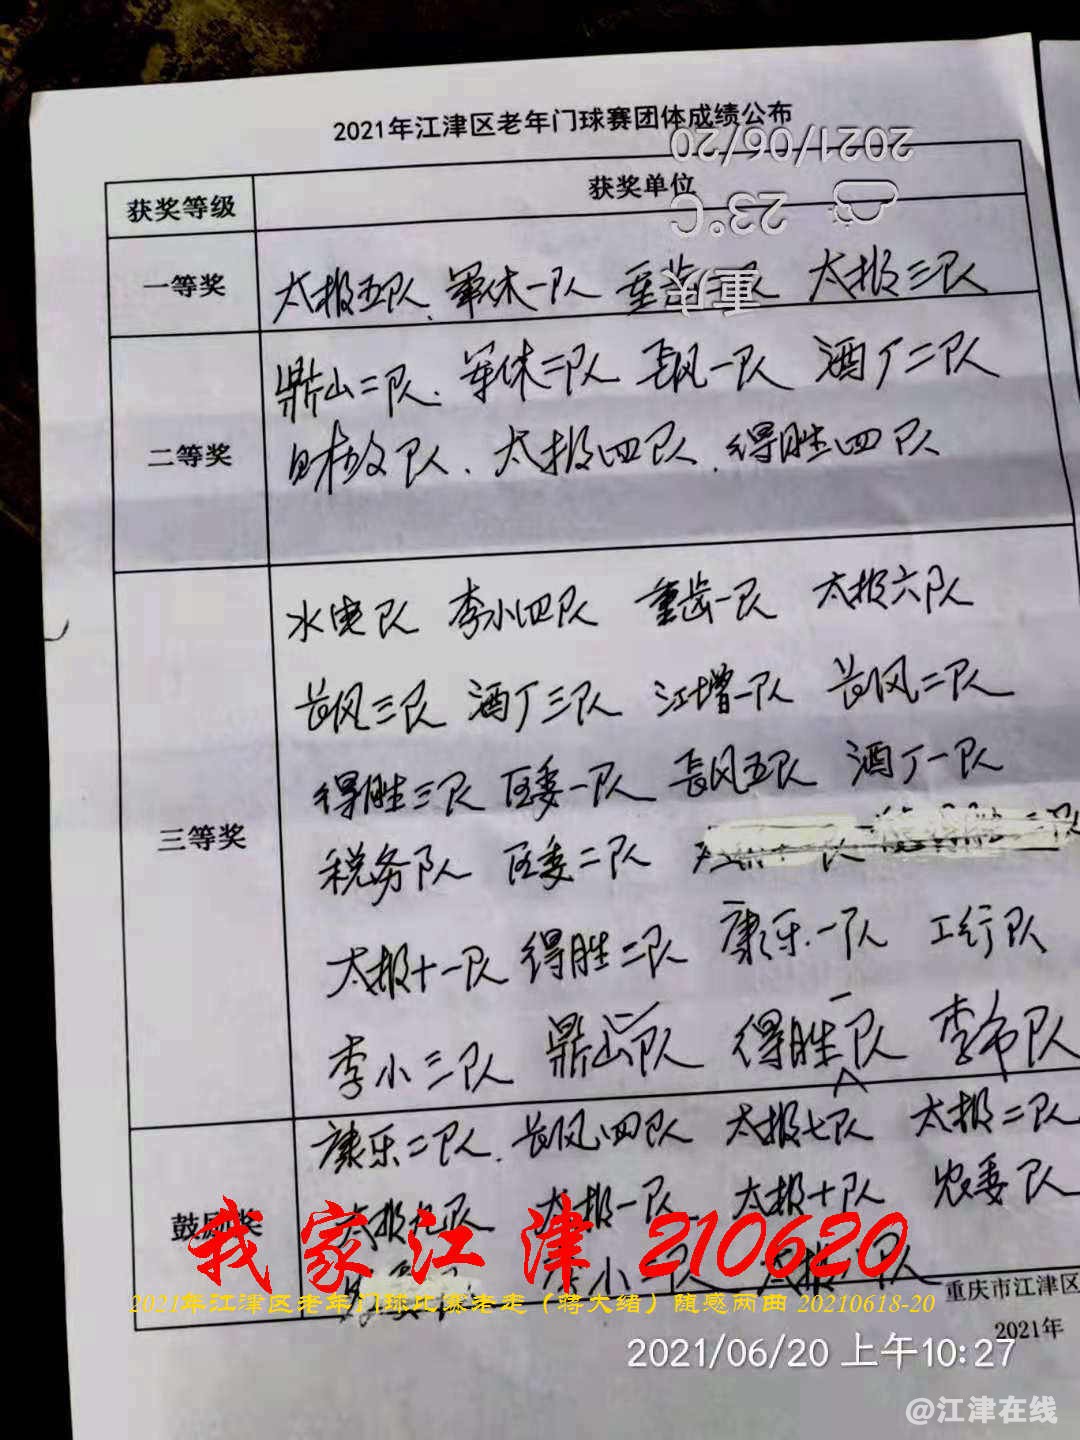 2021年江津区老年门球赛团体成绩公布
2021/06/20
获奖等级 获奖单位
23°C
重庆
一等奖 太极五队、军休一队 重齿二队 太极三队
二等奖 鼎山二队、军休二队 长风一队 酒厂二队
队、太极四队、得胜四队
三等奖 水电队 李小四队 重齿一队 太极六队
长风三队 酒厂三队 江增一队 长风二队
得胜三队 区委一队 长风五队 酒厂一队
税务队 区委二队
太极十一队 得胜二队 康乐一队 工行队
李小三队 鼎山一队 得胜一队 李市队
鼓励奖 康乐二队、长风四队 太极七队 太极二队
太极九队 太极一队 太极十队 农委队
李小二队 太极八队
我家江津 210620
2021年江津区老年门球比赛老走（蒋大绪）随感两曲 20210618-20
重庆市江津区
2021年
2021/06/20 上午10:27
@江津在线